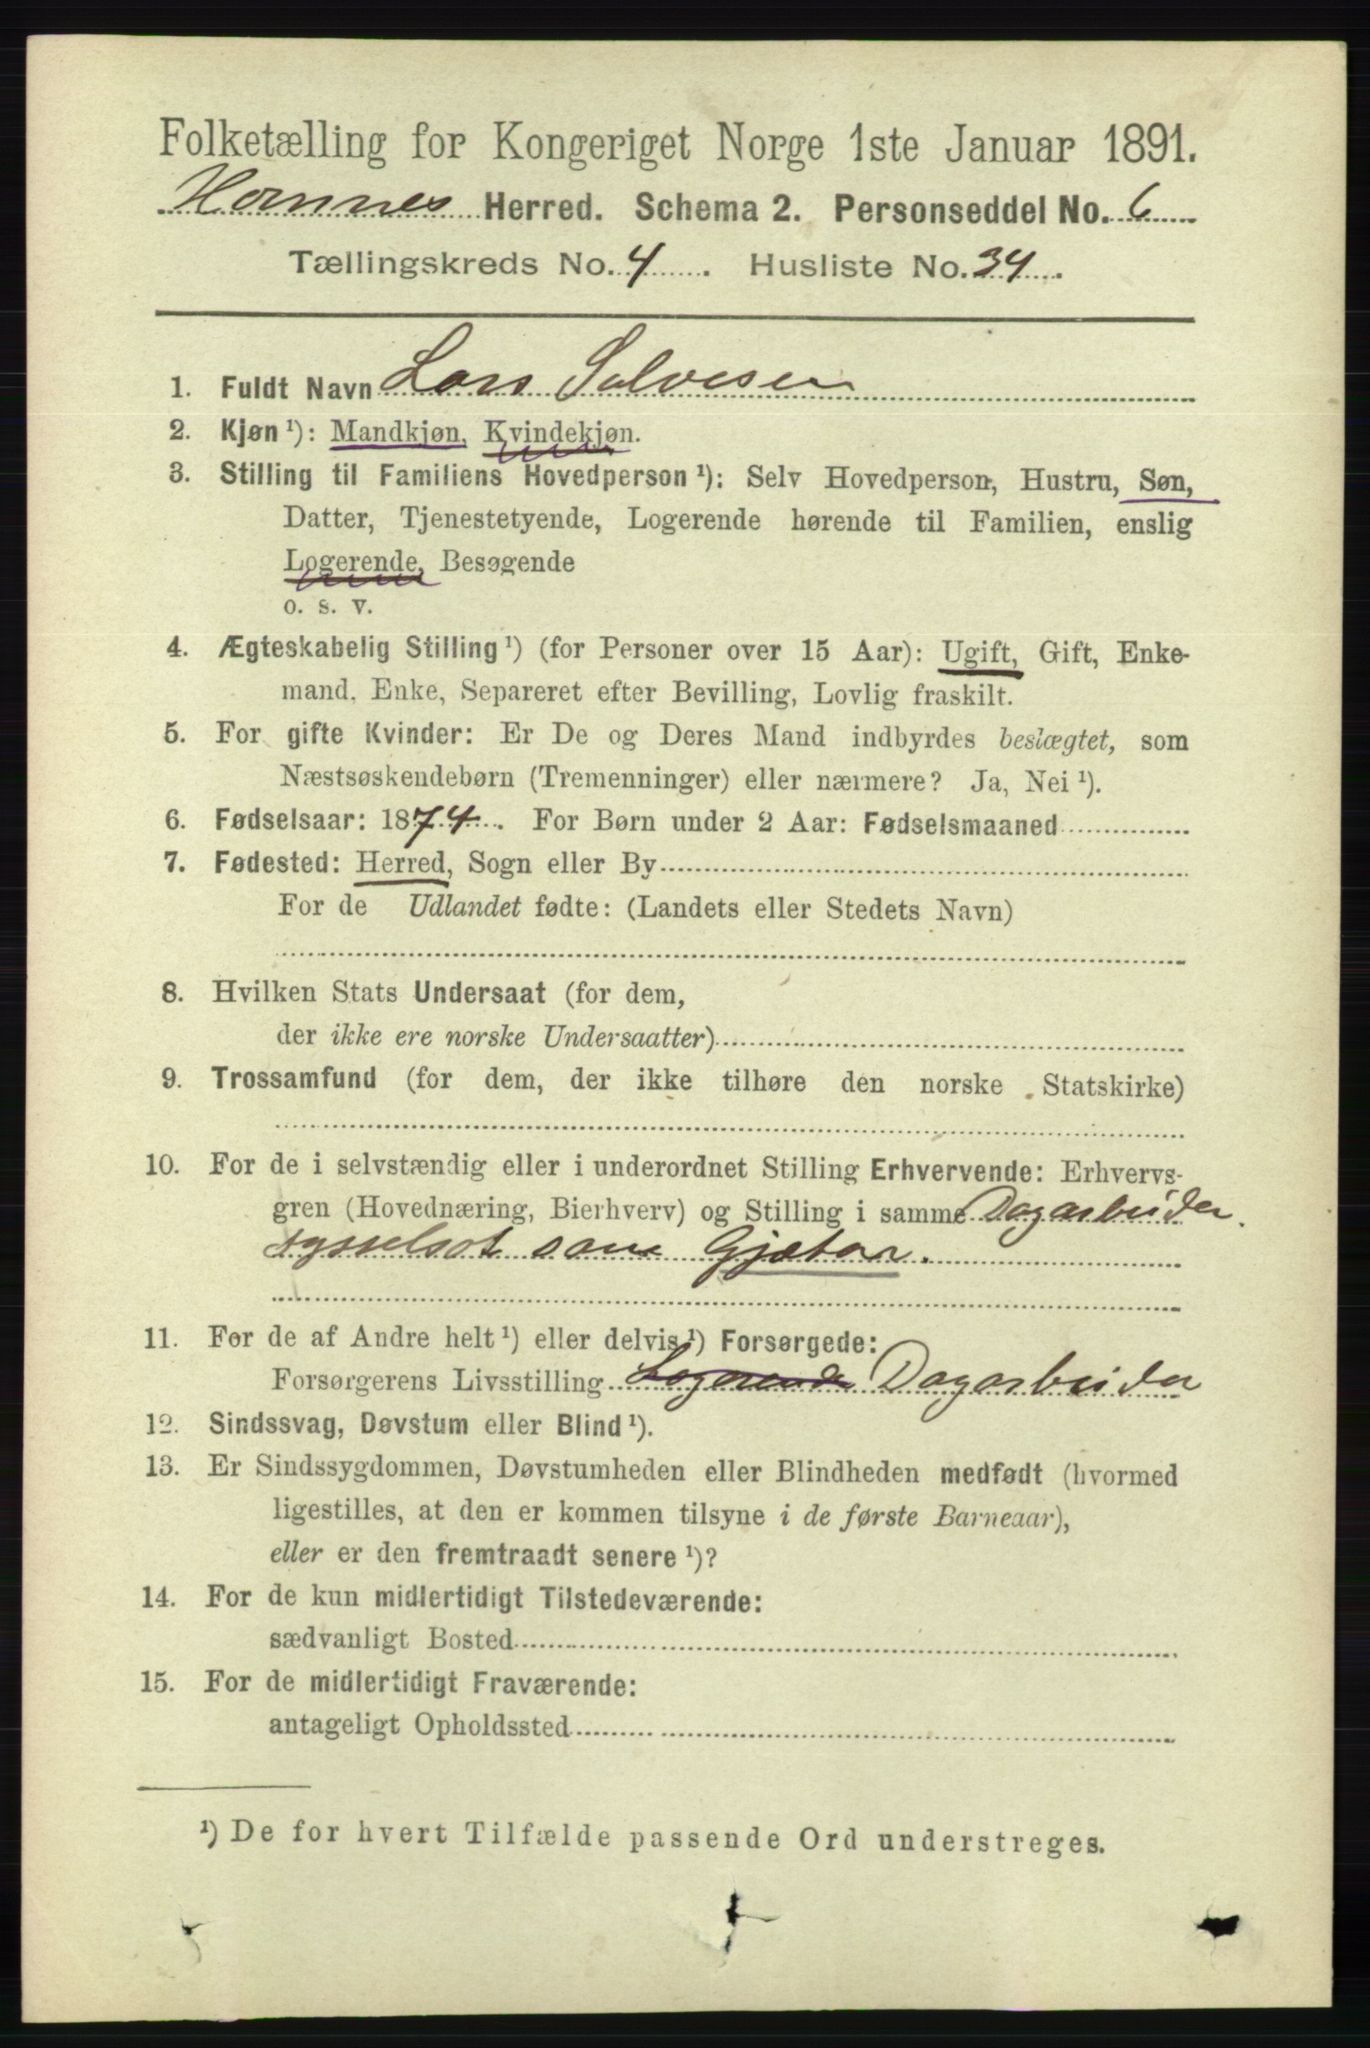 Folketælling for Kongeriget Norge 1ste Januar 1891.
Hornnes Herred. Schema 2. Personseddel No. 6
Tællingskreds No. 4. Husliste No. 34.
1. Fuldt Navn Lars Salvesen
2. Kjøn ¹): Mandkjøn, Kvindekjøn.
3. Stilling til Familiens Hovedperson ¹): Selv Hovedperson, Hustru, Søn,
Datter, Tjenestetyende, Logerende hørende til Familien, enslig
Logerende, Besøgende
o. s. v.
4. Ægteskabelig Stilling ¹) (for Personer over 15 Aar): Ugift, Gift, Enke-
mand, Enke, Separeret efter Bevilling, Lovlig fraskilt.
5. For gifte Kvinder: Er De og Deres Mand indbyrdes beslægtet, som
Næstsøskendebørn (Tremenninger) eller nærmere? Ja, Nei ¹).
6. Fødselsaar: 1874. For Børn under 2 Aar: Fødselsmaaned
7. Fødested: Herred, Sogn eller By
For de Udlandet fødte: (Landets eller Stedets Navn)
8. Hvilken Stats Undersaat (for dem,
der ikke ere norske Undersaatter)
9. Trossamfund (for dem, der ikke tilhøre den norske Statskirke)
10. For de i selvstændig eller i underordnet Stilling Erhvervende: Erhvervs-
gren (Hovednæring, Bierhverv) og Stilling i samme Dagarbeider.
sysselsat som Gjæter.
11. For de af Andre helt ¹) eller delvis ¹) Forsørgede:
Forsørgerens Livsstilling Logerende Dagarbeider
12. Sindssvag, Døvstum eller Blind ¹).
13. Er Sindssygdommen, Døvstumheden eller Blindheden medfødt (hvormed
ligestilles, at den er kommen tilsyne i de første Barneaar),
eller er den fremtraadt senere ¹)?
14. For de kun midlertidigt Tilstedeværende:
sædvanligt Bosted
15. For de midlertidigt Fraværende:
antageligt Opholdssted
¹) De for hvert Tilfælde passende Ord understreges.